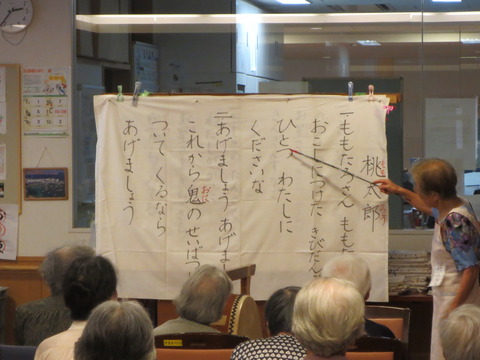 桃太郎
一ももたろさん もも
おこしにつけた きびだん
ひとつ わたしに
くださいな
二あげましょう あげま
これから鬼のせいばつ
おに
ついて くるなら
あげましょう